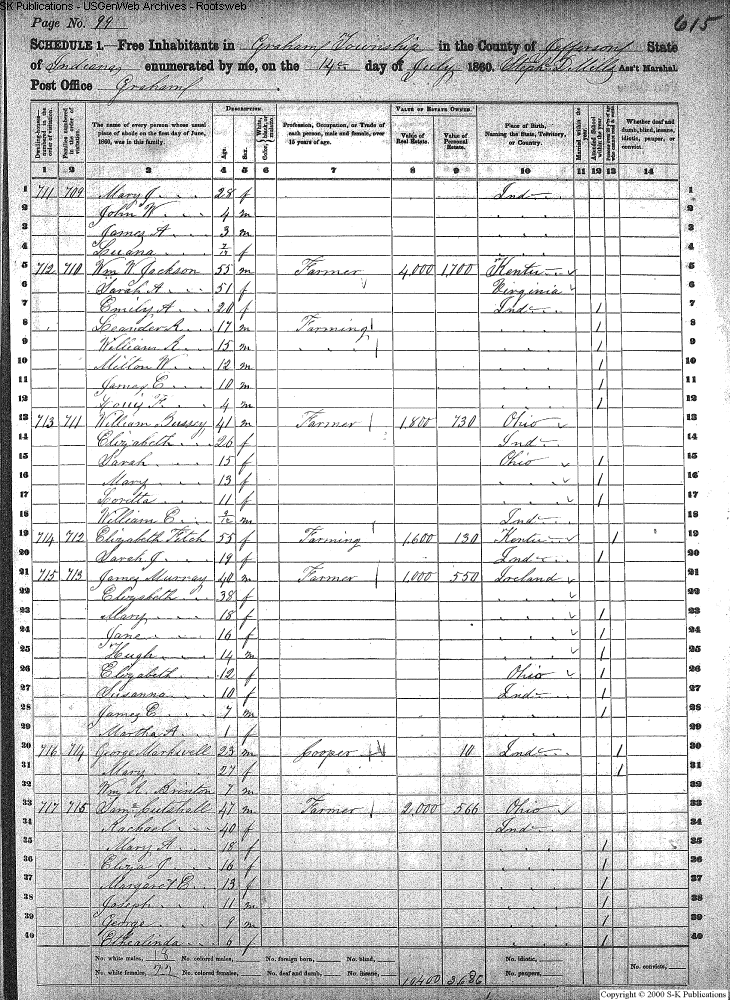 SK Publications - USGenWeb Archives - Rootsweb
Page No. 99
615
SCHEDULE 1.—Free Inhabitants in Graham Township in the County of Jefferson State
of Indiana enumerated by me, on the 14th day of July 1860. Ass't Marshal.
Post Office Graham
DESCRIPTION. VALUE OF ESTATE OWNED.
Dwelling-houses—numbered in the order of visitation.
Families numbered in the order of visitation.
The name of every person whose usual place of abode on the first day of June, 1860, was in this family.
Age. Sex. Color,
Profession, Occupation, or Trade of each person, male and female, over 15 years of age.
Value of Real Estate. Value of Personal Estate.
Place of Birth, Naming the State, Territory, or Country.
Married within the year. Attended School within the year.
Whether deaf and dumb, blind, insane, idiotic, pauper, or convict.
1 2 3 4 5 6 7 8 9 10 11 12 13 14
1 711 709 Mary J. 28 f Ind 1
2 John W. 4 m 2
3 James A 3 m 3
4 Luana f 4
5 712 710 Wm W Jackson 55 m Farmer 4,000 1,700 Kentu 5
6 Sarah A 51 f Virginia 6
7 Emily A 20 f Ind 1 7
8 Leander R 17 m Farming 1 8
9 William R 15 m 1 9
10 Milton W 12 m 1 10
11 James C 10 m 1 11
12 F. 4 m 1 12
13 713 711 William Bussey 41 m Farmer 1,800 730 Ohio 13
14 Elizabeth 26 f Ind 14
15 Sarah 15 f Ohio 1 15
16 Mary 13 f 1 16
17 Loretta 11 f 1 17
18 William C 9/12 m Ind 18
19 714 712 Elizabeth Fitch 55 f Farming 1,600 130 Kentu 1 19
20 Sarah J. 19 f Ind 1 20
21 715 713 James Murray 40 m Farmer 1,000 550 Ireland 21
22 Elizabeth 38 f 22
23 Mary 18 f 1 23
24 Jane 16 f 1 24
25 Hugh 14 m 1 25
26 Elizabeth 12 f Ohio 1 26
27 Susanna 10 f Ind 1 27
28 James E 7 m 1 28
29 Martha A 1 f 29
30 716 714 George Markwell 23 m Cooper 10 Ind 1 30
31 Mary 27 f 1 31
32 Wm H. Brinton 7 m 32
33 717 715 Saml 47 m Farmer 2,000 566 Ohio 33
34 Rachael 40 f Ind 34
35 Mary A 18 f 1 35
36 Eliza J 16 f 1 36
37 Margaret E 13 f 1 37
38 Joseph 11 m 1 38
39 George 9 m 1 39
40 Ethealinda 6 f 1 40
No. white males, 18 No. colored males, No. foreign born, No. blind, No. idiotic,
No. white females, 22 No. colored females, No. deaf and dumb, No. insane, 10400 3686 No. paupers, No. convicts,
Copyright © 2000 S-K Publications